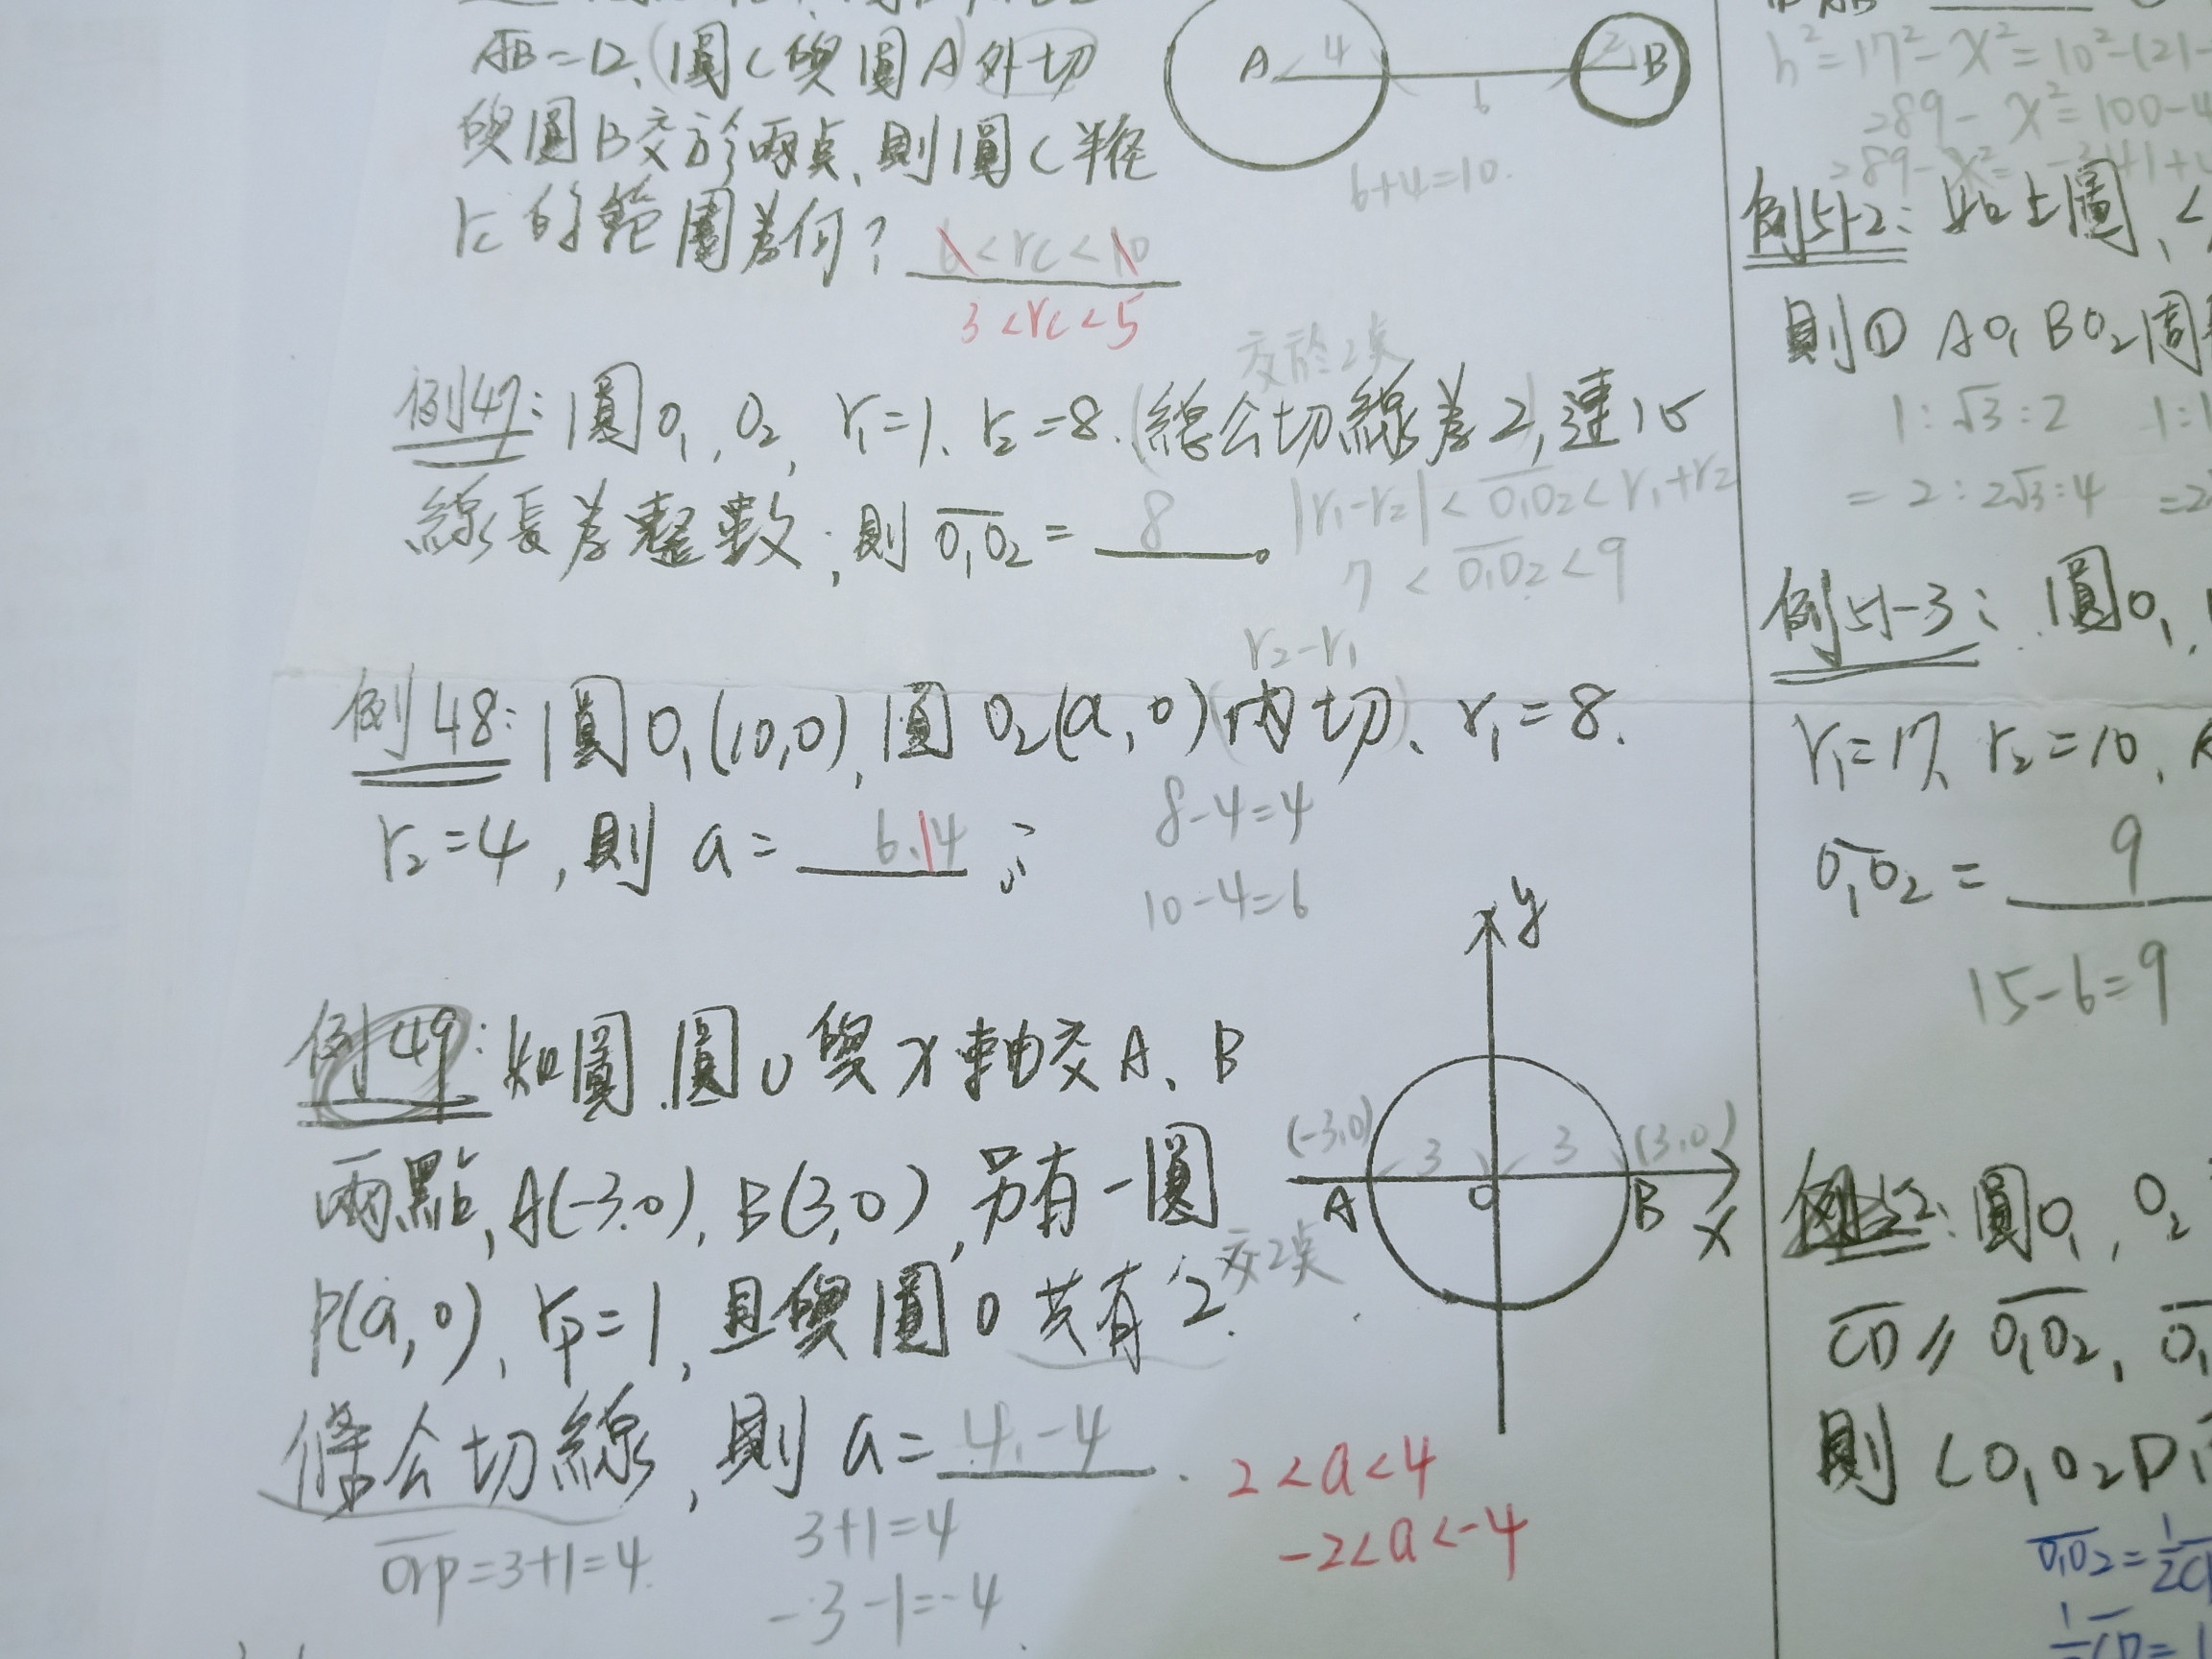 AB=12,(圓C與圓A)外切
與圓B交於兩点,則圓C半徑
rc的範圍為何? 6<rc<10
3<rc<5
A 4 6 2 B
6+4=10.
交於2点
例47:圓O₁,O₂,r₁=1、r₂=8.(總公切線為2),連心
線長為整數,則O₁O₂=8。
|r₁-r₂|<O₁O₂<r₁+r₂
7<O₁O₂<9
r₂-r₁
例48:圓O₁(10,0),圓O₂(a,0)(內切)、r₁=8.
r₂=4,則a=6.14;
8-4=4
10-4=6
例49:如圖.圓O與x軸交A、B
兩點,A(-3,0),B(3,0),另有一圓
P(a,0),rp=1,且與圓O共有2
交2点
條公切線,則a=4,-4.
2<a<4
-2<a<-4
Orp=3+1=4.
3+1=4
-3-1=-4
y
(-3,0) 3 3 (3,0)
A O B x
h²=17²-x²=10²-(21-
289-x²=100-4
289-x²=
例51-2:如上圖,
則① AO₁BO₂周
1:√3:2 1:1
=2:2√3:4 =2
例51-3:圓O₁,
r₁=17、r₂=10,
O₁O₂=9
15-6=9
圓O₁,O₂
CD//O₁O₂,
則<O₁O₂D
O₁O₂=1/2